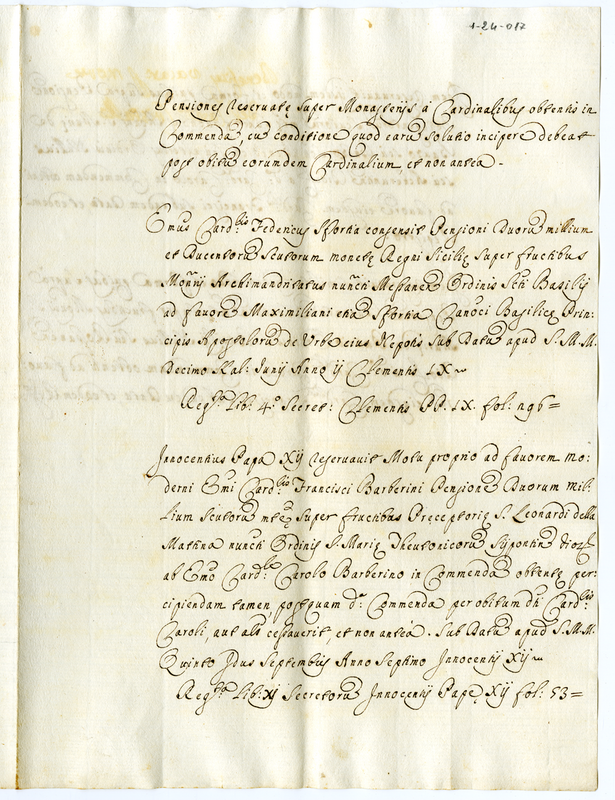 1-24-017
Pensiones reservatę super Monasterijs à Cardinalibus obtentis in
Commendã, cũ conditione quod earũ solutio incipere debeat
post obitũ eorumdem Cardinalium, et non antea.
Emus Card.lis Federicus Sfortia consensit Pensioni Duorũ millium
et Ducentorũ scutorum monetę Regni Sicilię super fructibus
Monrij Archimandritatus nuncti Messanen Ordinis Sti Basilij
ad favorẽ Maximiliani etiã Sfortia Canoci Basilicę Prin:
cipis Apostolorũ de Urbe eius Nepotis, sub Datũ apud S. M. M.
Decimo Kal: Junij Anno ij Clementis IX
Reg.ta Lib: 4.o Secret: Clementis PP. IX. fol: 196=
Innocentius Papa XIJ reservavit Motu proprio ad favorem mo:
derni Emi Card.lis Francisci Barberini Pensionẽ Duorum mil:
lium scutorũ mtę super fructibus Pręceptorię S. Leonardi della
Mattina nuncti Ordinis S. Marię Theutonicorũ Sypontin
ab Emo Card.le Carolo Barberino in Commendã obtentę per:
cipiendam tamen postquam d.a Commenda per obitum dti Card.lis
Caroli, aut als cessaverit, et non anteà. Sub Datũ apud S. M. M.
Quinto Idus Septembris Anno Septimo Innocentij XIJ
Reg.ta Lib: XJ Secretorũ Innocentij Papę XIJ fol: 53=